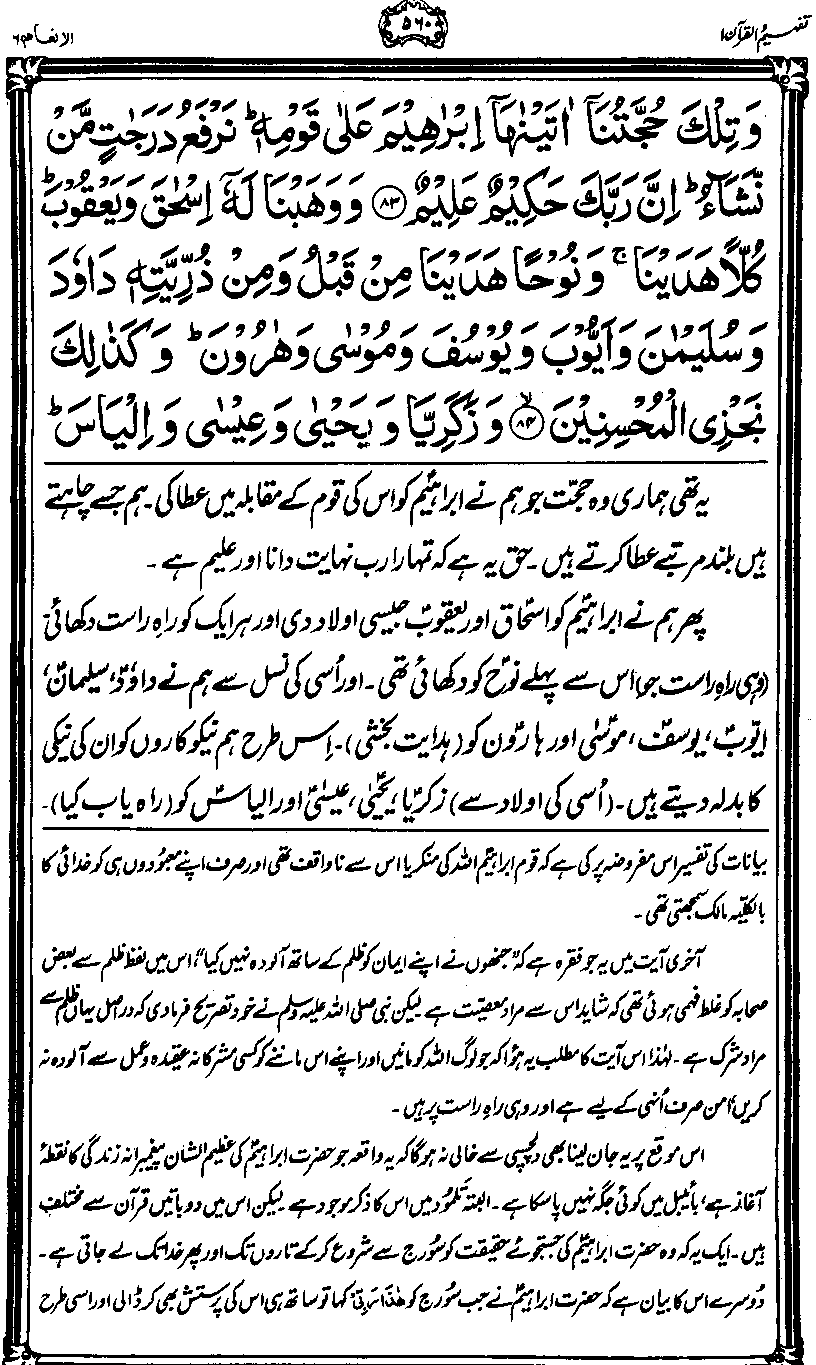 تفہیم القرآن ۱
۵۶۰
الانعام ۶
وَتِلْكَ حُجَّتُنَآ اٰتَيْنٰهَآ اِبْرٰهِيْمَ عَلٰى قَوْمِهٖ ؕ نَرْفَعُ دَرَجٰتٍ مَّنْ
نَّشَآءُ ؕ اِنَّ رَبَّكَ حَكِيْمٌ عَلِيْمٌ ﴿۸۳﴾ وَوَهَبْنَا لَهٗٓ اِسْحٰقَ وَيَعْقُوْبَ ؕ
كُلًّا هَدَيْنَا ۚ وَنُوْحًا هَدَيْنَا مِنْ قَبْلُ وَمِنْ ذُرِّيَّتِهٖ دَاوٗدَ
وَسُلَيْمٰنَ وَاَيُّوْبَ وَيُوْسُفَ وَمُوْسٰى وَهٰرُوْنَ ؕ وَكَذٰلِكَ
نَجْزِى الْمُحْسِنِيْنَ ﴿۸۴﴾ ۙ وَزَكَرِيَّا وَيَحْيٰى وَعِيْسٰى وَاِلْيَاسَ ؕ
یہ تھی ہماری وہ حجّت جو ہم نے ابراہیمؑ کو اس کی قوم کے مقابلہ میں عطا کی۔ ہم جسے چاہتے
ہیں بلند مرتبے عطا کرتے ہیں۔ حق یہ ہے کہ تمہارا رب نہایت دانا اور علیم ہے۔
پھر ہم نے ابراہیمؑ کو اسحاقؑ اور یعقوبؑ جیسی اولاد دی اور ہر ایک کو راہِ راست دکھائی۔
(وہی راہِ راست جو) اس سے پہلے نوحؑ کو دکھائی تھی۔ اور اُسی کی نسل سے ہم نے داوٗدؑ، سلیمانؑ،
ایوبؑ، یوسفؑ، موسٰیؑ اور ہارونؑ کو (ہدایت بخشی)۔ اِس طرح ہم نیکو کاروں کو ان کی نیکی
کا بدلہ دیتے ہیں۔ (اُسی کی اولاد سے) زکریاؑ، یحیٰیؑ، عیسٰیؑ اور الیاسؑ کو (راہ یاب کیا)۔
بیانات کی تفسیر اس مفروضہ پر کی ہے کہ قوم ابراہیمؑ اللہ کی منکر یا اس سے ناواقف تھی اور صرف اپنے معبودوں ہی کو خدائی کا
بالکلیہ مالک سمجھتی تھی۔
آخری آیت میں یہ جو فقرہ ہے کہ ”جنھوں نے اپنے ایمان کو ظلم کے ساتھ آلودہ نہیں کیا“، اس میں لفظ ظلم سے بعض
صحابہ کو غلط فہمی ہوئی تھی کہ شاید اس سے مراد معصیت ہے لیکن نبی صلی اللہ علیہ وسلم نے خود تصریح فرما دی کہ دراصل یہاں ظلم سے
مراد شرک ہے۔ لہٰذا اس آیت کا مطلب یہ ہوا کہ جو لوگ اللہ کو مانیں اور اپنے اس ماننے کو کسی مشرکانہ عقیدہ و عمل سے آلودہ نہ
کریں، امن صرف اُنہی کے لیے ہے اور وہی راہِ راست پر ہیں۔
اس موقع پر یہ جان لینا بھی دلچسپی سے خالی نہ ہوگا کہ یہ واقعہ جو حضرت ابراہیمؑ کی عظیم الشان پیغمبرانہ زندگی کا نقطۂ
آغاز ہے، بائیبل میں کوئی جگہ نہیں پا سکا ہے۔ البتہ تَلْمُود میں اس کا ذکر موجود ہے لیکن اس میں دو باتیں قرآن سے مختلف
ہیں۔ ایک یہ کہ وہ حضرت ابراہیمؑ کی جستجوئے حقیقت کو سورج سے شروع کر کے تاروں تک اور پھر خدا تک لے جاتی ہے۔
دُوسرے اس کا بیان ہے کہ حضرت ابراہیمؑ نے جب سورج کو هٰذَا رَبِّیْ کہا تو ساتھ ہی اس کی پرستش بھی کر ڈالی اور اسی طرح